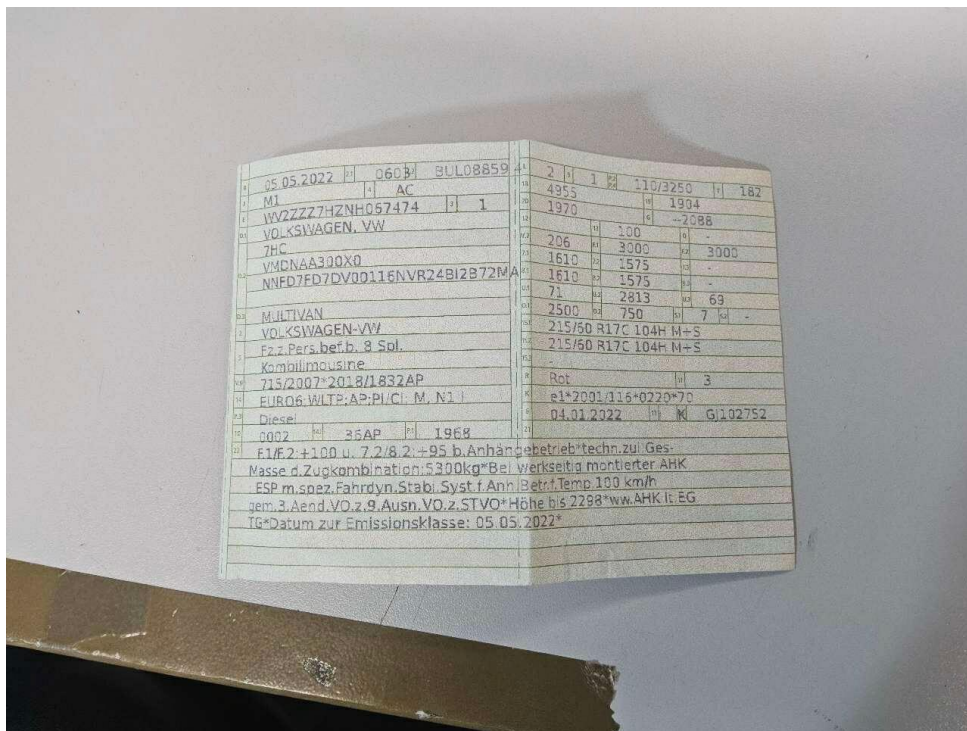 05.05.2022 0603 BUL08859
M1 AC
WV2ZZZ7HZNH067474 1
VOLKSWAGEN, VW
7HC
VMDNAA300X0
NNFD7FD7DV00116NVR24BI2B72MA
MULTIVAN
VOLKSWAGEN-VW
Fz.z.Pers.bef.b. 8 Spl.
Kombilimousine
715/2007*2018/1832AP
EURO6;WLTP;AP;PI/CI M, N1 I
Diesel
0002 36AP 1968
2 1 110/3250 182
4955 1904
1970 --2088
100 -
206 3000 3000
1610 1575 -
1610 1575 -
71 2813 69
2500 750 7 -
215/60 R17C 104H M+S
215/60 R17C 104H M+S
-
Rot 3
e1*2001/116*0220*70
04.01.2022 K GJ102752
F.1/F.2:+100 u. 7.2/8.2:+95 b.Anhängebetrieb*techn.zul Ges-
Masse d.Zugkombination:5300kg*Bei werkseitig montierter AHK
ESP m.spez.Fahrdyn.Stabi.Syst.f.Anh.Betr.f.Temp 100 km/h
gem.3.Aend.VO.z.9.Ausn.VO.z.STVO*Höhe bis 2298*ww.AHK lt.EG
TG*Datum zur Emissionsklasse: 05.05.2022*